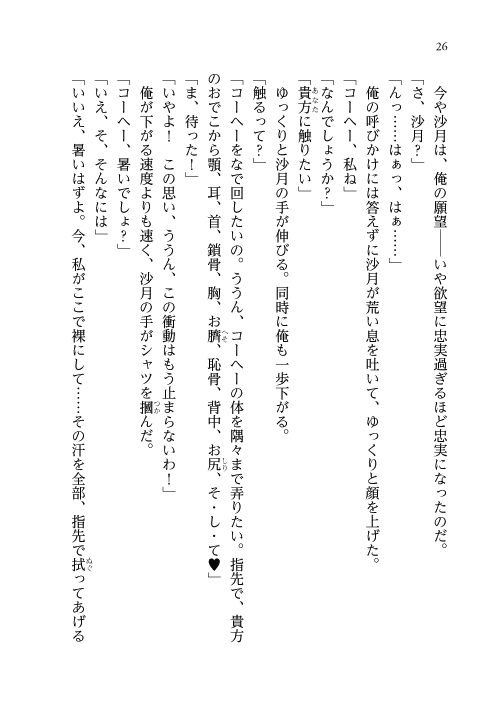 26
今や沙月は、俺の願望――いや欲望に忠実過ぎるほど忠実になったのだ。
「さ、沙月？」
「んっ……はぁっ、はぁ……」
俺の呼びかけには答えずに沙月が荒い息を吐いて、ゆっくりと顔を上げた。
「コーヘー、私ね」
「なんでしょうか？」
「貴方に触りたい」
ゆっくりと沙月の手が伸びる。同時に俺も一歩下がる。
「触るって？」
「コーヘーをなで回したいの。ううん、コーヘーの体を隅々まで弄りたい。指先で、貴方
のおでこから顎、耳、首、鎖骨、胸、お臍、恥骨、背中、お尻、そ・し・て♥」
「ま、待った！」
「いやよ！　この思い、ううん、この衝動はもう止まらないわ！」
俺が下がる速度よりも速く、沙月の手がシャツを摑んだ。
「コーヘー、暑いでしょ？」
「いえ、そ、そんなには」
「いいえ、暑いはずよ。今、私がここで裸にして……その汗を全部、指先で拭ってあげる